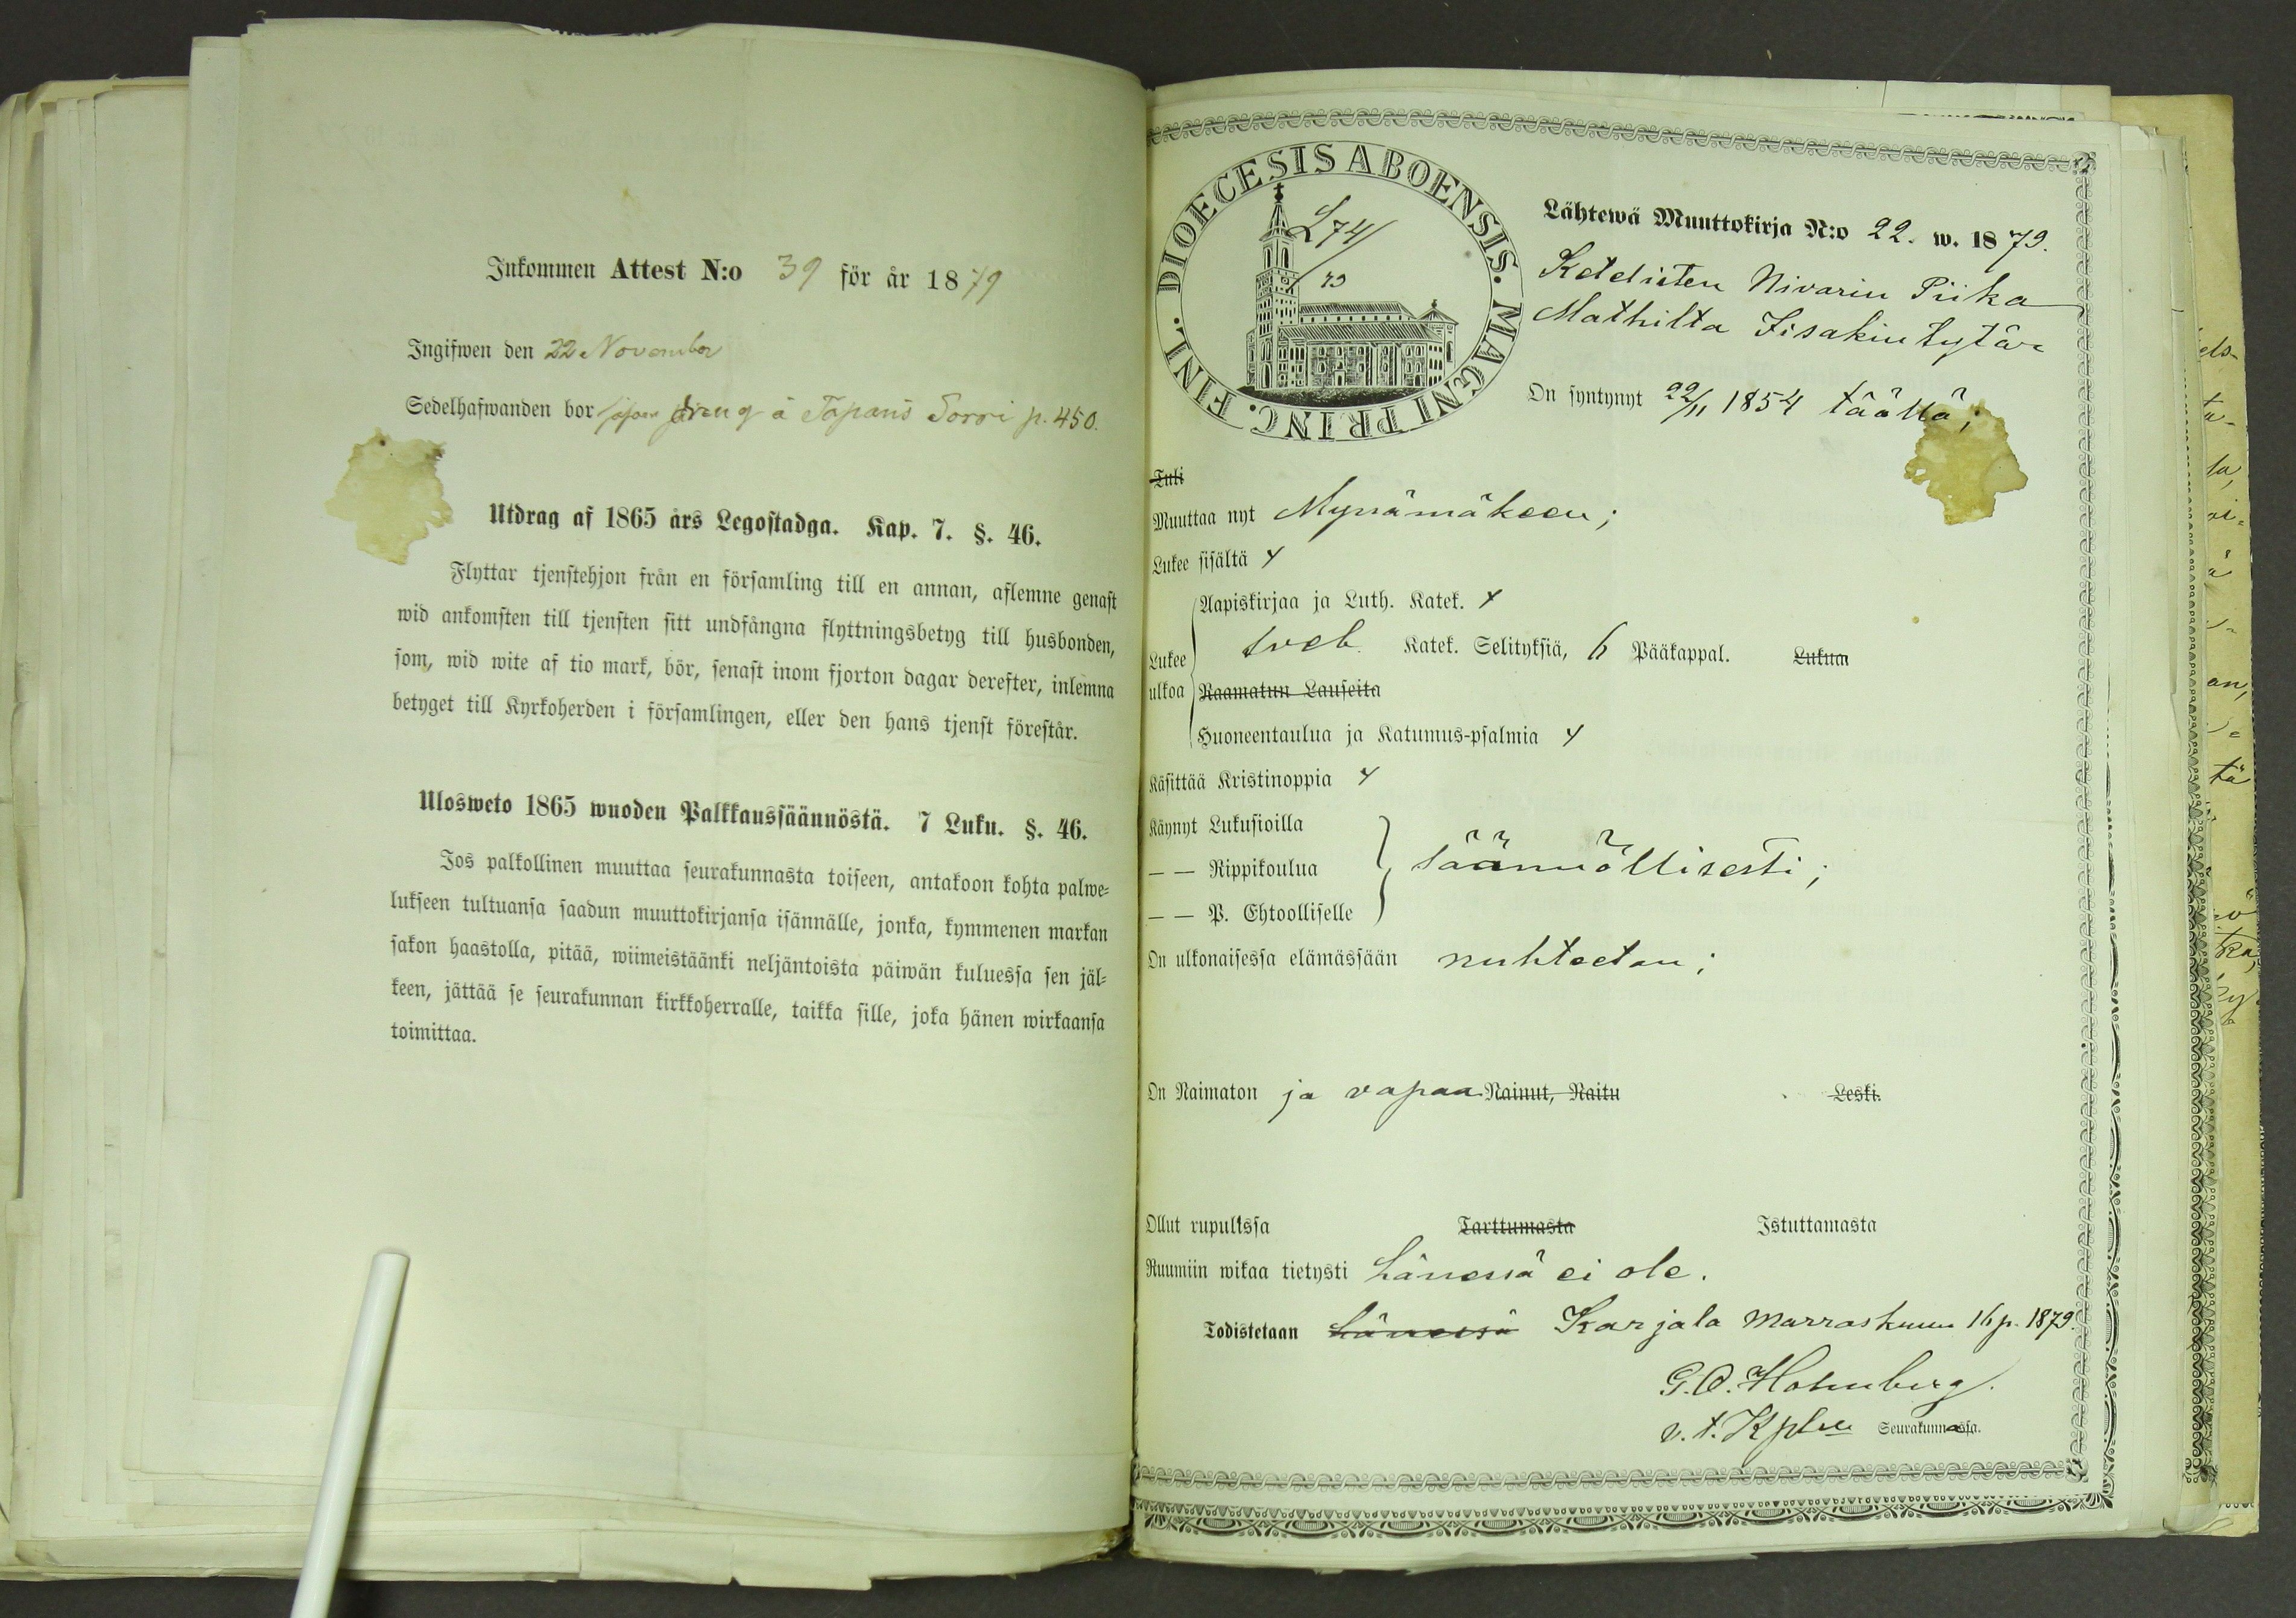 Inkommen Attest N:o 39 för år 1879
Ingifwen den 22 November
Sedelhafwanden bor dräng å Tapans Torri p. 450.
Utdrag af 1865 års Legostadga. Kap. 7. §. 46.
Flyttar tjenstehjon från en församling till en annan, aflemne genast
wid ankomsten till tjensten sitt undfångna flyttningsbetyg till husbonden,
som, wid wite af tio mark, bör, senast inom fjorton dagar derefter, inlemna
betyget till Kyrkoherden i församlingen, eller den hans tjenst förestår.
Ulosweto 1865 wuoden Palkkaussäännöstä. 7 Luku. §. 46.
Jos palkollinen muuttaa seurakunnasta toiseen, antakoon kohta palwe-
lukseen tultuansa saadun muuttokirjansa isännälle, jonka, kymmenen markan
sakon haastolla, pitää, wiimeistäänki neljäntoista päiwän kuluessa sen jäl-
keen, jättää se seurakunnan kirkkoherralle, taikka sille, joka hänen wirkaansa
toimittaa.
DIOECESIS ABOENSIS. MAGNI PRINC. FINL.
L 74/
73
Lähtewä Muuttokirja N:o 22. w. 1879.
Nivarin Piika
Mathilta Iisakintytär
On syntynyt 22/11 1854 täällä;
Tuli
Muuttaa nyt Mynämäkeen;
Lukee sisältä
Aapiskirjaa ja Luth. Katek.
Lukee Sveb. Katek. Selityksiä, 6 Pääkappal. Lukua
ulkoa Raamatun Lauseita
Huoneentaulua ja Katumus-psalmia
Käsittää Kristinoppia
Käynyt Lukusioilla
— — Rippikoulua säännöllisesti;
— — P. Ehtoolliselle
On ulkonaisessa elämässään nuhteeton;
On Naimaton ja vapaa Nainut, Naitu Leski.
Ollut rupulissa Tarttumasta Istuttamasta
Ruumiin wikaa tietysti hänessä ei ole.
Todistetaan hänessä Karjala Marraskuun 16 p. 1879.
G. O. Holmberg.
v. t. Seurakunnassa.